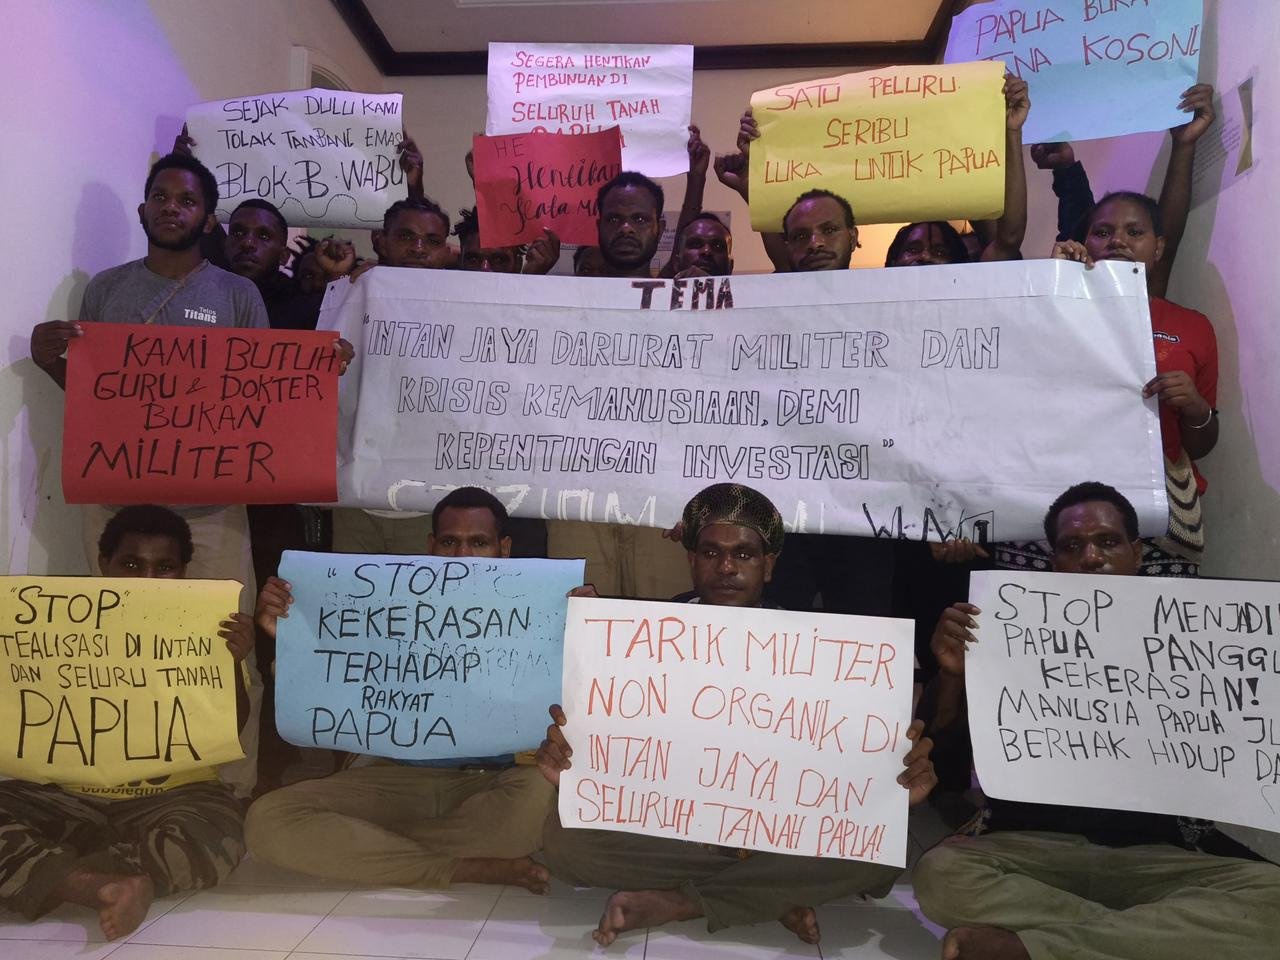 PAPUA BUKA
TANA KOSONG
SEGERA HENTIKAN
PEMBUNUAN DI
SELURUH TANAH
PAPUA
SATU PELURU.
SERIBU
LUKA UNTUK PAPUA
SEJAK DULU KAMI
TOLAK TAMBANG EMAS
BLOK.B.WABU
HE
Hentikan
TEMA
"INTAN JAYA DARURAT MILITER DAN
KRISIS KEMANUSIAAN, DEMI
KEPENTINGAN INVESTASI"
Telos
Titans
KAMI BUTUH
GURU & DOKTER
BUKAN
MILITER
"STOP"
TEALISASI DI INTAN
DAN SELURU TANAH
PAPUA
bubblegum
"STOP"
KEKERASAN
TERHADAP
RAKYAT
PAPUA
TARIK MILITER
NON ORGANIK DI
INTAN JAYA DAN
SELURUH TANAH PAPUA!
STOP MENJADI
PAPUA PANGGU
KEKERASAN!
MANUSIA PAPUA JU
BERHAK HIDUP DA